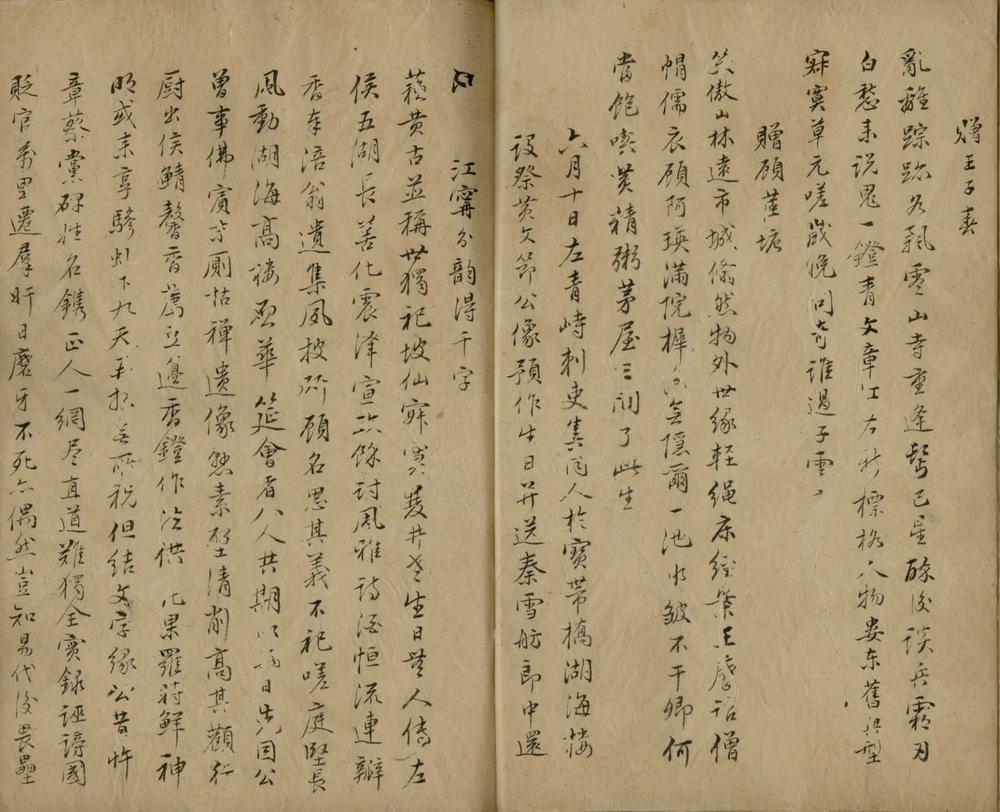 贈王子春
亂離踪跡久飄零山寺重逢鬢已星酔後談兵霜刃
白愁来說鬼一鐙青文章江左新標格人物婁東舊典型
寂寞草元嗟歲晚问奇誰過子雲
贈顧蓳塘
笑傲山林遠市城翛然物外世緣軽繩床经案王摩诘僧
帽儒衣顾阿瑛滿院樨香無隱爾一池水皺不干卿何
當飽喫黄精粥茅屋三间了此生
六月十日左青峙刺史集同人於寶带橋湖海楼
设祭黄文節公像預作生日并送秦雪舫郎中還
江寧分韵得千字
蘓黄古並稱世獨祀坡仙寂寞雙井老生日無人傳左
侯五湖長善化震泽宣政餘討風雅詩酒恒流連瓣
香奉涪翁遺集夙披研顾名思其義不祀嗟庭堅長
風動湖海高楼啟華筵會者八人共期以兩日先因公
曾事佛賓亦廁枯禅遗像懸素壁清削高其顴行
厨出侯鯖馨香薦豆邊香鐙作法供几果羅蒔鮮神
明或来享驂虬下九天再拜無所祝但结文字缘公昔忤
章蔡黨碑姓名鐫正人一網尽直道難獨全實錄誣謗國
貶官萬里遷羣奸日磨牙不死亦偶然豈知易代後畏壘